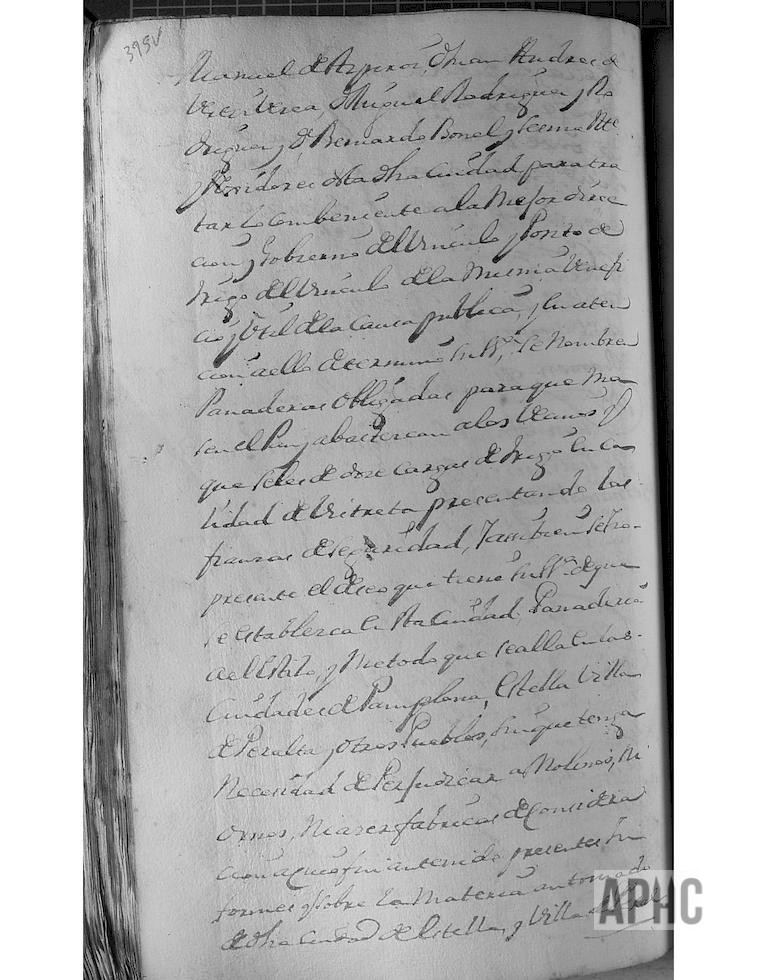 395v
Manuel de Azpiroz, Juan Andres de
Miguel Rodriguez y Ro
driguez y Dn Bernardo Bonel y
y Rexidores desta dha Ciudad para tra
tar lo combeniente a la Mejor direc
cion y Gobierno del Vinculo y Posito de
trigo del Vinculo de la Misma Venefi
cio y Util de la Causa publica, y en aten
cion a ello determinó su Sª. Se Nombren
Panaderas Obligadas para que ma
sen el Pan y abastezcan a los Vecinos y
que se les de doze Cargas de trigo en ca
lidad de Vistreta presentando las
fianzas de seguridad, Tambien se hizo
presente el deseo que tiene su Sª. de que
se establezca en esta Ciudad, Panaderia
del Estilo, y Metodo que se alla en las
Ciudades de Pamplona, Estella Villa
de Peralta y otros Pueblos, sin que tenga
Necesidad de Perjudicar a Molinos, Ni
Ornos, Ni azer fabricas de Considera
cion a cuio fin a tenido presentes In
formes sobre la Materia an tomado
de dha Ciudad de Estella, y Villa
APHC